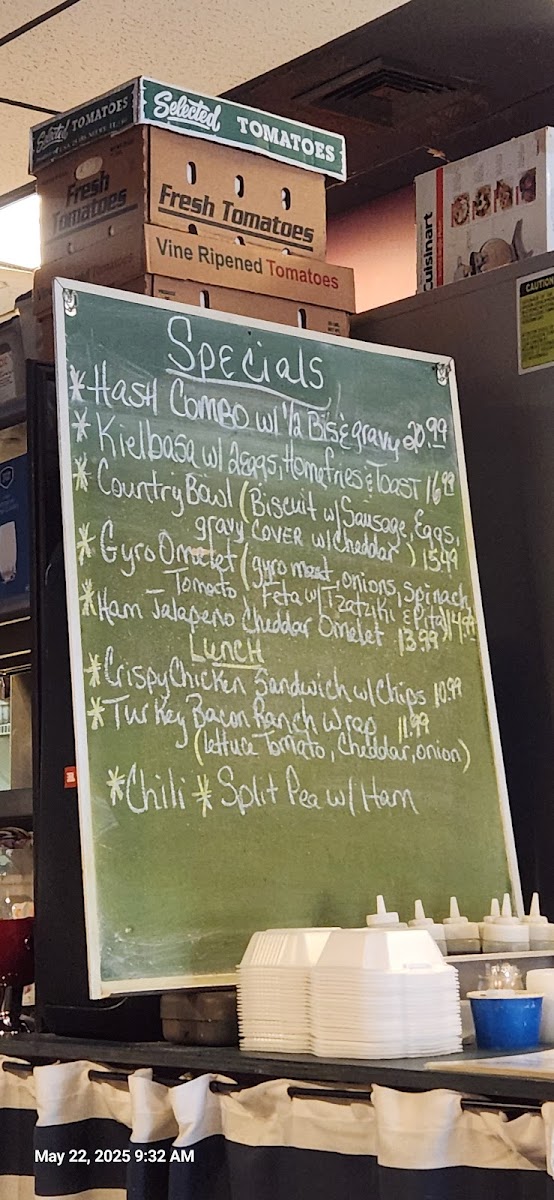 Selected TOMATOES
Selected TOMATOES
Fresh Tomatoes
Fresh Tomatoes
Vine Ripened Tomatoes
Cuisinart
CAUTION
Specials
*Hash Combo w/ 1/2 Bis & gravy 20.99
*Kielbasa w/ 2eggs, Homefries & Toast 16.99
*Country Bowl (Biscuit w/ Sausage, Eggs,
gravy cover w/ Cheddar) 15.49
*Gyro Omelet (gyro meat, onions, spinach
Tomato Feta w/ Tzatziki & Pita) 14.99
*Ham Jalapeno Cheddar Omelet 13.99
Lunch
*Crispy Chicken Sandwich w/ Chips 10.99
*Turkey Bacon Ranch wrap 11.99
(lettuce Tomato, cheddar, onion)
*Chili *Split Pea w/ Ham
May 22, 2025 9:32 AM